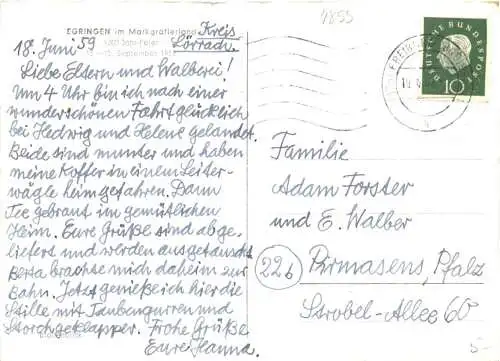 EGRINGEN im Markgräflerland Kreis
1200 Jahr-Feier Lörrach.
18. Juni 59
15. September 195
Liebe Eltern und Walberei!
Um 4 Uhr bin ich nach einer
wunderschönen Fahrt glücklich
bei Hedwig und Helene gelandet.
Beide sind munter und haben
meine Koffer in einem Leiter-
wägle heimgefahren. Dann
Tee gebraut im gemütlichen
Heim. Eure Grüße sind abge-
liefert und werden ausgetauscht.
Berta brachte mich daheim zur
Bahn. Jetzt genieße ich hier die
Stille mit Taubengurren und
Storchgeklapper. Frohe Grüße
Eure Hanna.
1855
DEUTSCHE BUNDESPOST
10
Familie
Adam Forster
und E. Walber
22b
Pirmasens, Pfalz
Strobel-Allee 60
5-